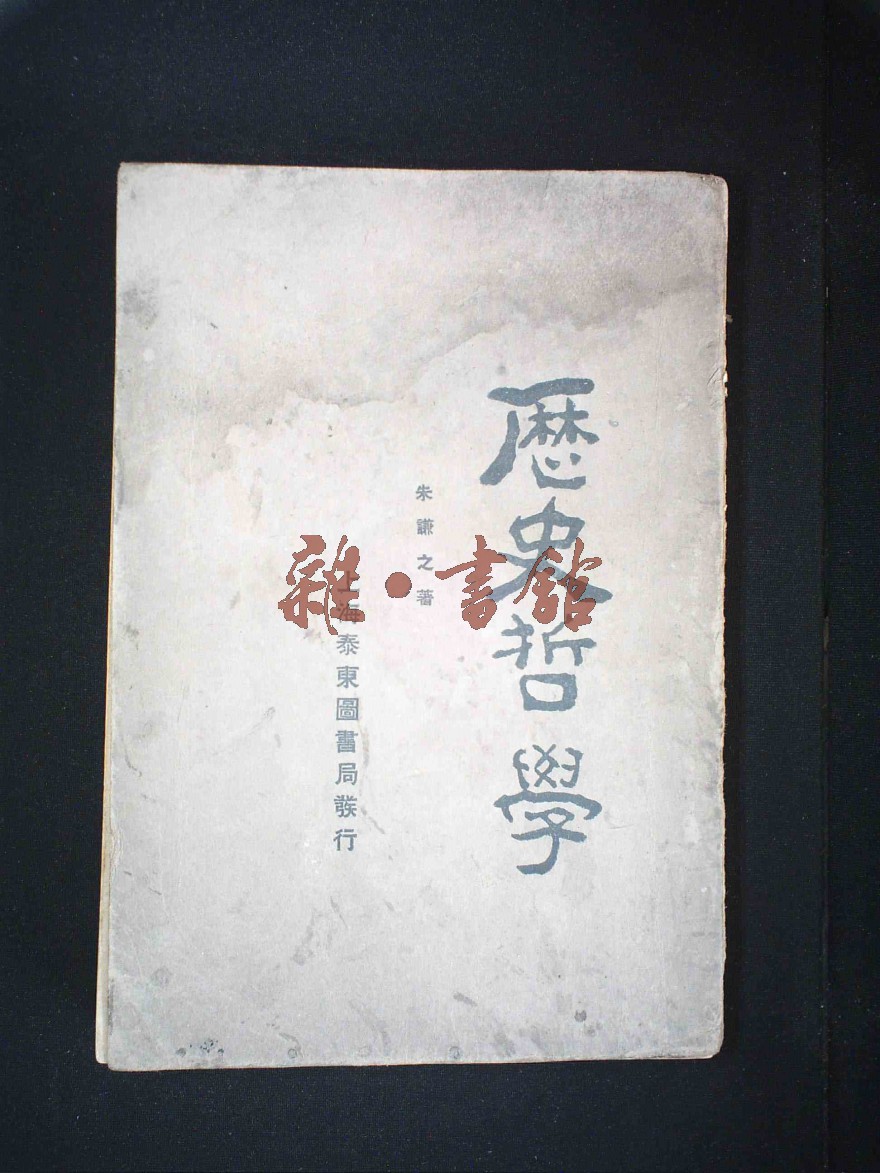 歷史哲學
朱謙之著
上海泰東圖書局發行
雜·書館